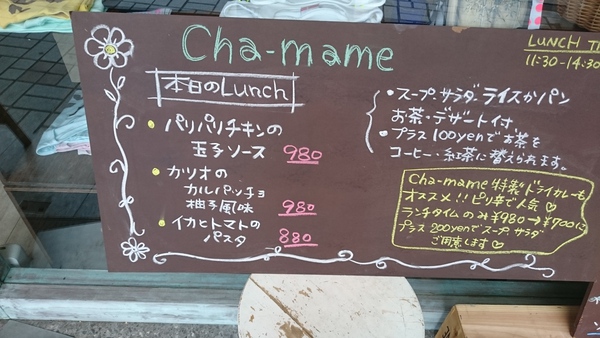 Cha-mame
LUNCH TI
11:30-14:30
本日のLunch
・パリパリチキンの
玉子ソース 980
・カツオの
カルパッチョ
柚子風味 980
・イカとトマトの
パスタ 880
・スープ・サラダ・ライスかパン
お茶・デザート付
・プラス100yenでお茶を
コーヒー・紅茶に替えられます。
Cha-mame 特製ドライカレーも
オススメ!!ピリ辛で人気♡
ランチタイムのみ¥980→¥700に
プラス200yenでスープ サラダ
ご用意します♡